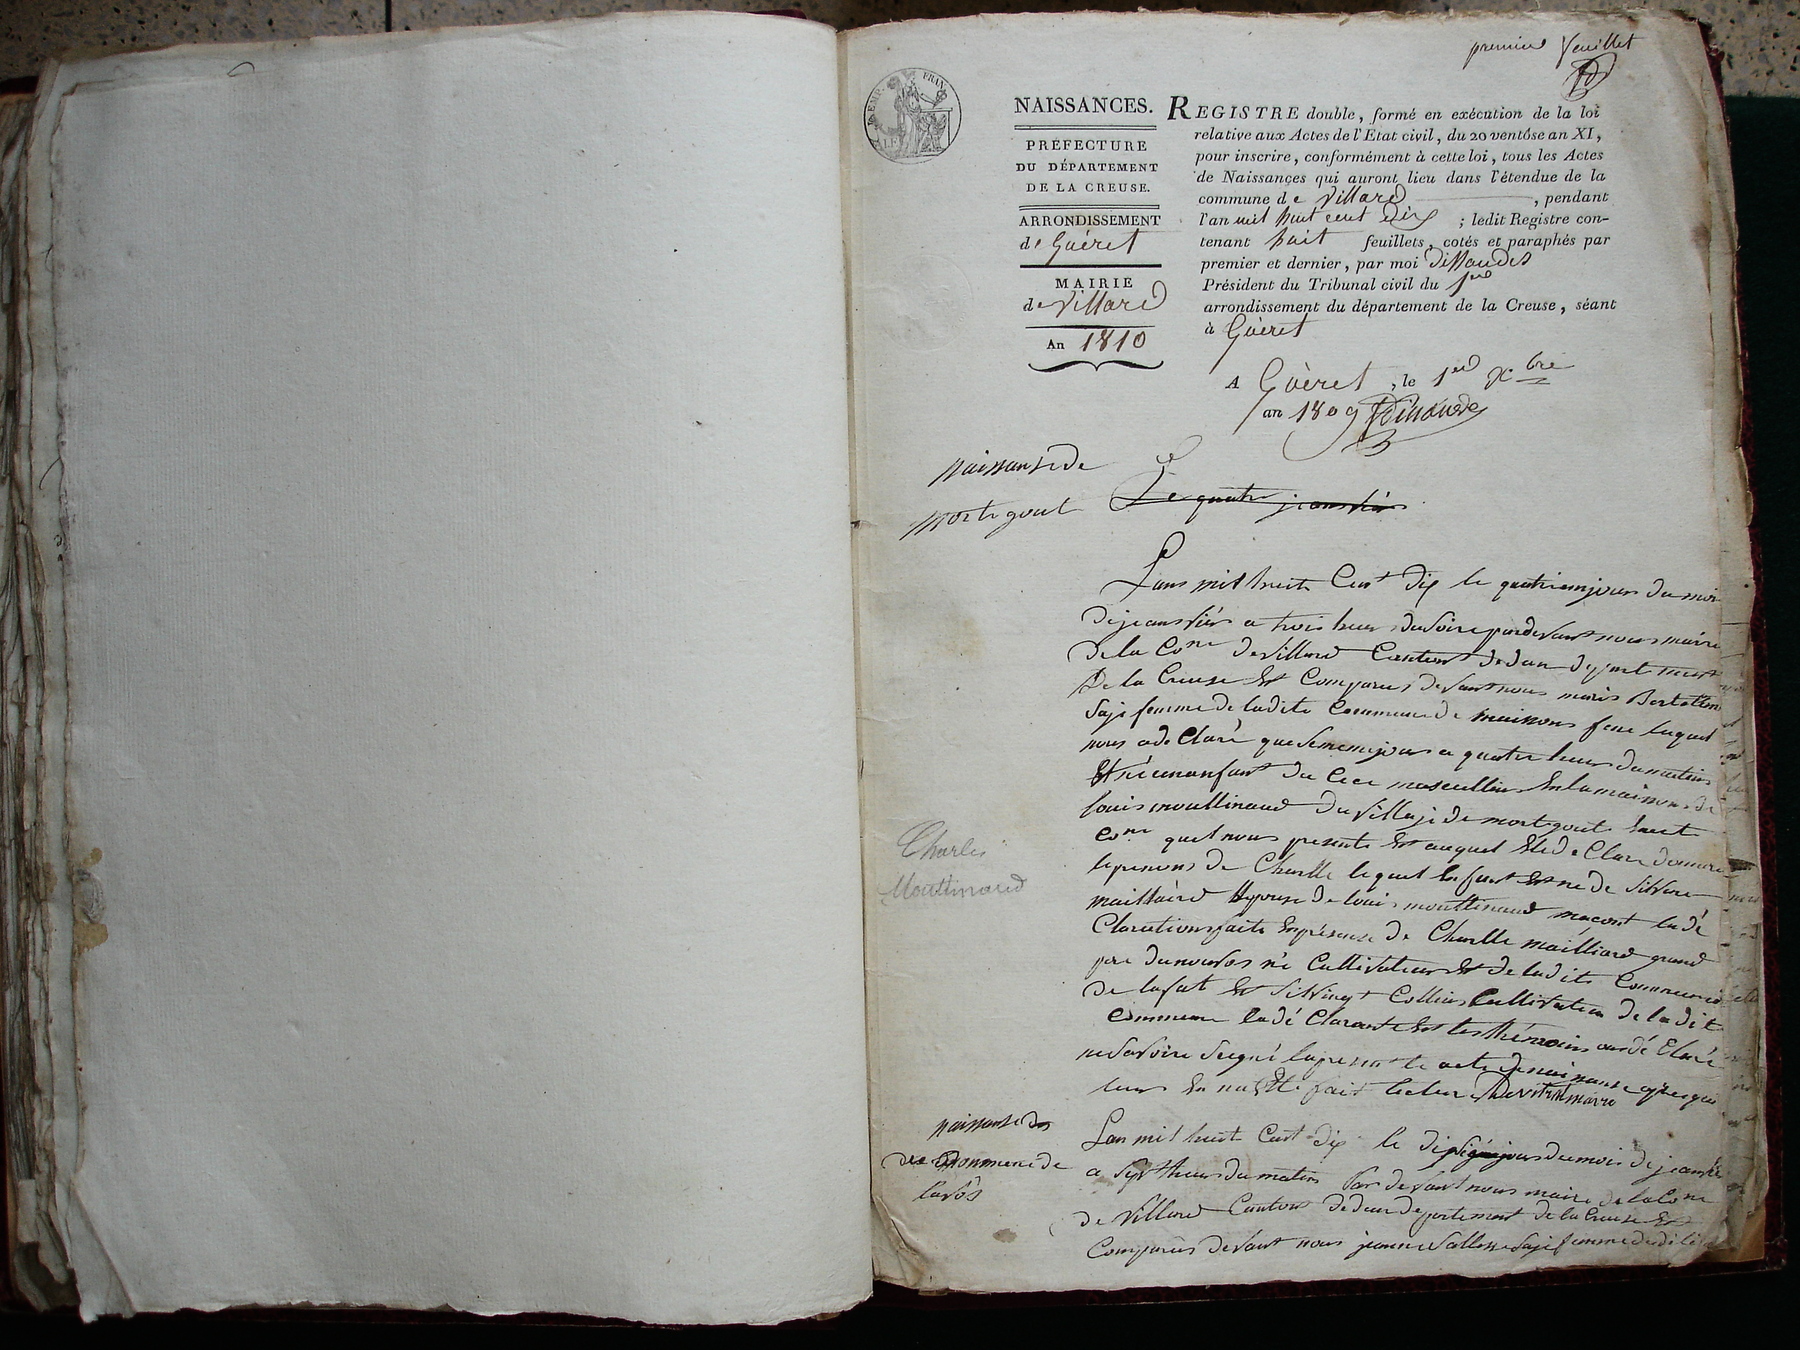 premier feuillet
EMP. FRAN.
NAISSANCES.
PRÉFECTURE
DU DÉPARTEMENT
DE LA CREUSE.
ARRONDISSEMENT
de Guéret
MAIRIE
de Villard
An 1810
REGISTRE double, formé en exécution de la loi
relative aux Actes de l'Etat civil, du 20 ventôse an XI,
pour inscrire, conformément à cette loi, tous les Actes
de Naissances qui auront lieu dans l'étendue de la
commune de Villard, pendant
l'an mil huit cent dix ; ledit Registre con-
tenant huit feuillets, cotés et paraphés par
premier et dernier, par moi
Président du Tribunal civil du 1er
arrondissement du département de la Creuse, séant
à Guéret
A Guéret, le 1er Xbre
an 1809
naissanse de
mortegout
Le quatre jeanvier
Lans mil huite Cent dix le quatriemjour du moi
de jeanvier a trois heur du soire pardevant nous maire
de la Cone de Villard Canton de dun
De la Creuse Est Comparus devant nous marie
Saje femme de ladite Commune de maisons fene laquel
nous a de Claré que sememejour a quatre heur du matin
Est né un anfant du Cece masculin En la maison de
louis moullinaud du Villaje de mortgout
Cone quel nous presente Et auquel Ele de Clare donner
le prenons de Charlle lequel Enfant Est né de Silvine
maillard Epouse de louis moullinaud maçont la dé
Claration faite En présence de Charlle mailliard grand
pere du nouvos né Cullivateur Et de ladite Commune
de lafat Et Silvingt Collin Cullivateur de la dit
Commune la dé Clarante Et les thémoins on dé Claré
ne Savoire Seigné la present acte de naisanse
leur En na Etté fait lecteur maire
Charles
Moullinaud
naissanse de
de
lavos
Lan mil huit Cent dix le jour du mois de jeanvié
a Sept heur du matin Par devant nous maire de la Cone
de Villard Canton de dun departement de la Creuse Est
Comparus devant nous jeanne Saje femme